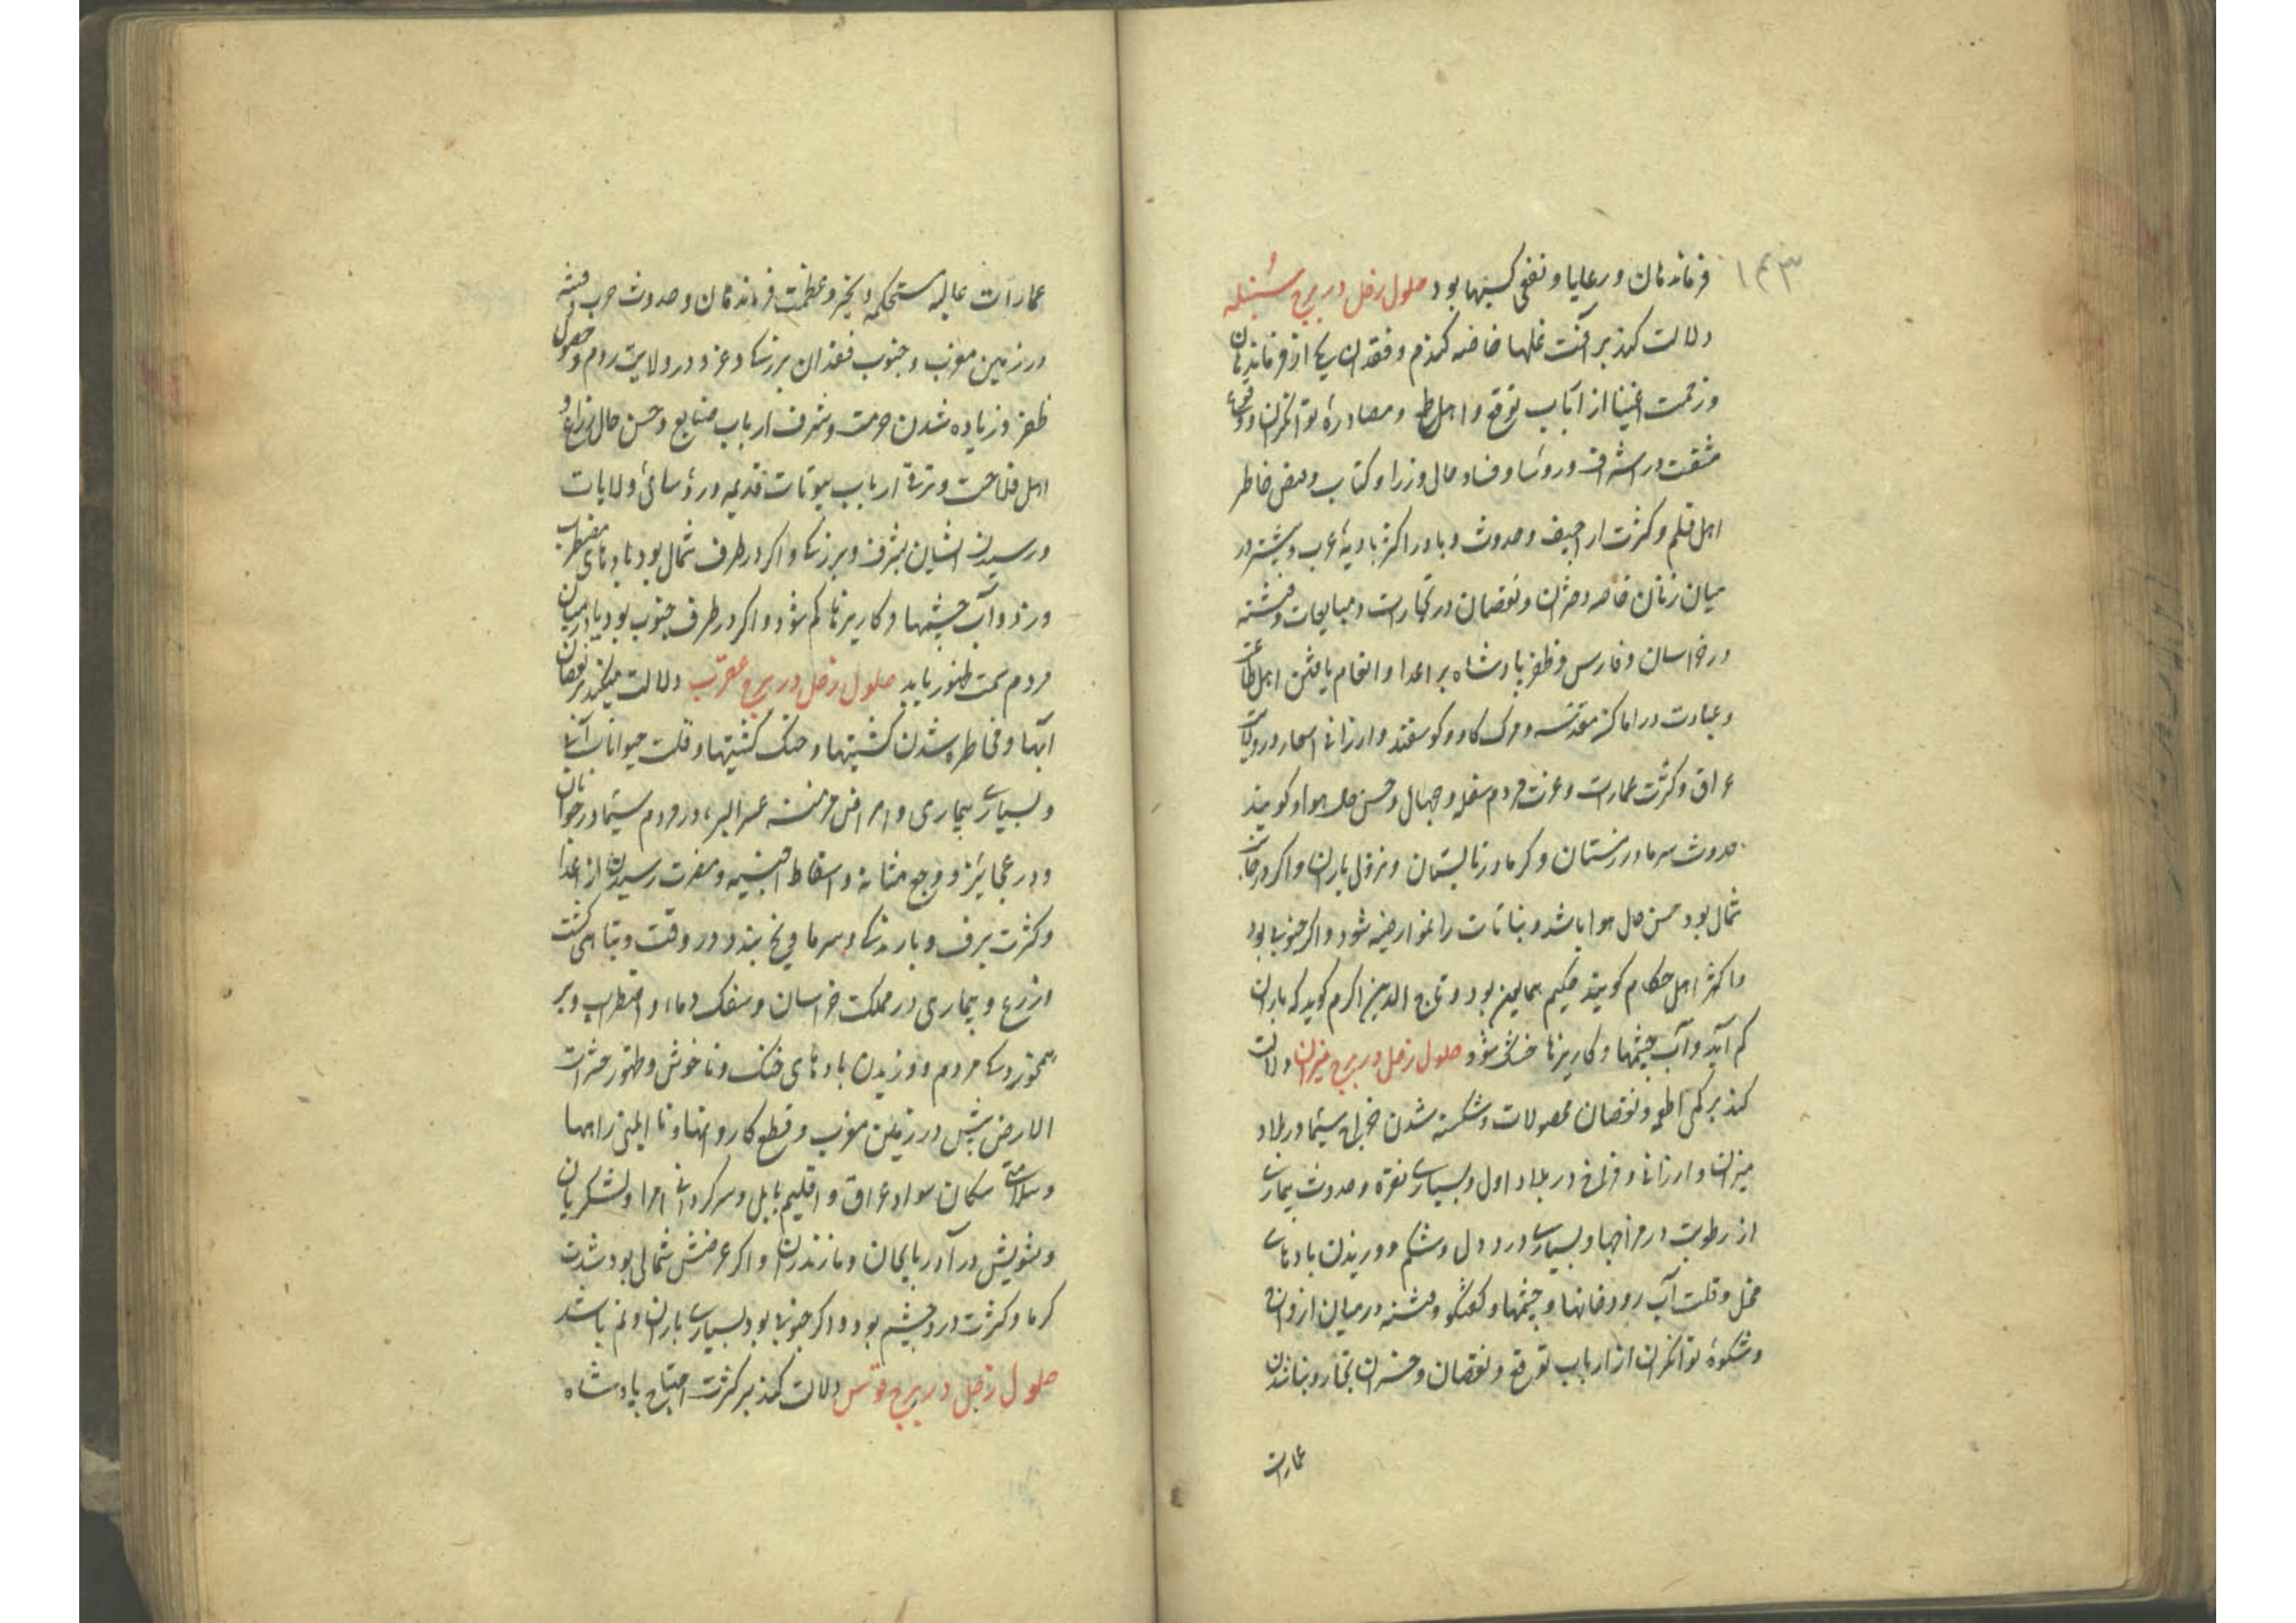 ۱۴۳
فرماندهان و رعایا و نفی کسبها بود حلول زحل در برج سنبله
دلالت کند بر آفت غلها خاصه کندم و فقدان یکی از فرماندهان
و زحمت اغنیا از ارباب توقع و اهل و مصادرهٔ توانکران و وقوع
مشقت در اشراف و روسا و فساد حال وزرا و کتاب و بغض خاطر
اهل قلم و کثرت اراجیف و حدوث وبا در اکثر بادیهٔ عرب و بیشتر در
میان زنان خاصه دختران و نقصان در تجارت و مبایعات و فتنه
در خراسان و فارس و ظفر پادشاه بر اعدا و انعام یافتن اهل طاعت
و عبادت در اماکن مقدسه و مرک کاو و کوسفند و ارزانی اسعار در ولایت
عراق و کثرت عمارت و عزت مردم سفله و جهال و حسن حال هوا و کویند
حدوث سرما در زمستان و کرما در تابستان و نزول باران و اکر در جانب
شمال بود حسن حال هوا باشد و بناتات را نمو ارضیه شود و اکر جنوبی بود
ما کثر اهل حکام کویند حکیم همایمین بود و تاج الدین اکرم کوید که باران
کم آید و آب چشمها و کاریزها خشک شود حلول زحل در برج میزان دلالت
کند بر کمی اطعمه و نقصان محصولات و شکسته شدن سیما در بلاد
میزان و ارزانی و فراخی در بلاد اول و بسیاری نقره و حدوث بیماری
از رطوبت در مزاجها و بسیاری درد دل و شکم و وزیدن بادهای
مخل و قلت آب رودخانها و چشمها و کفتکو و فتنه در میان ازواج
و شکوهٔ توانکران از ارباب توقع و نقصان و خسران تجار و بنا شدن
عمارات
عمارات عالیه مستحکمه و عظمت فرماندهان و حدوث حرب و فتنه
در زمین مغرب و جنوب فقدان بزرکی و غزو در ولایت روم و حصول
ظفر و زیاده شدن حرمت و شرف ارباب صنایع و حسن حال زراع و
اهل فلاحت و ترقی ارباب بیوتات قدیمه و رؤسای ولایات
و رسیدن ایشان بشرف و بزرکی و اکر در طرف شمال بود بادهای مضطرب
وزد و آب چشمها و کاریزها کم شود و اکر در طرف جنوب بود وبا در میان
مردم سمت ظهور یابد حلول زحل در برج عقرب دلالت میکند بر نقصان
آبها و مخاطره شدن کشتیها و جنک کشتیها و قلت حیوانات آبی
و بسیاری بیماری و امراض مزمنه عسر البرء در مردم سیما در جوانان
و در عجایز و وجع مثانه و اسقاط اجنیه و مضرت رسیدن از اعدا
و کثرت برف و بارندکی و سرما و یخ بندد در وقت و تباهی کشت
از زرع و بیماری در مملکت خراسان و سفک دماء و اضطراب و بر
همخوردکی مردم و وزیدن بادهای خنک و ناخوش و ظهور حشرات
الارض بیش در زمین مغرب و قطع کاروانها و نا ایمنی راهها
و سلامتی سکان سواد عراق و اقلیم بابل و سرکردانی امرا و لشکریان
و تشویش در آذربایجان و مازندران و اکر عرضش شمالی بود شدت
کرما و کثرت درد چشم بود و اکر جنوبی بود بسیاری باران و نم باشد
حلول زحل در برج قوس دلالت کند بر کثرت احتیاج پادشاه